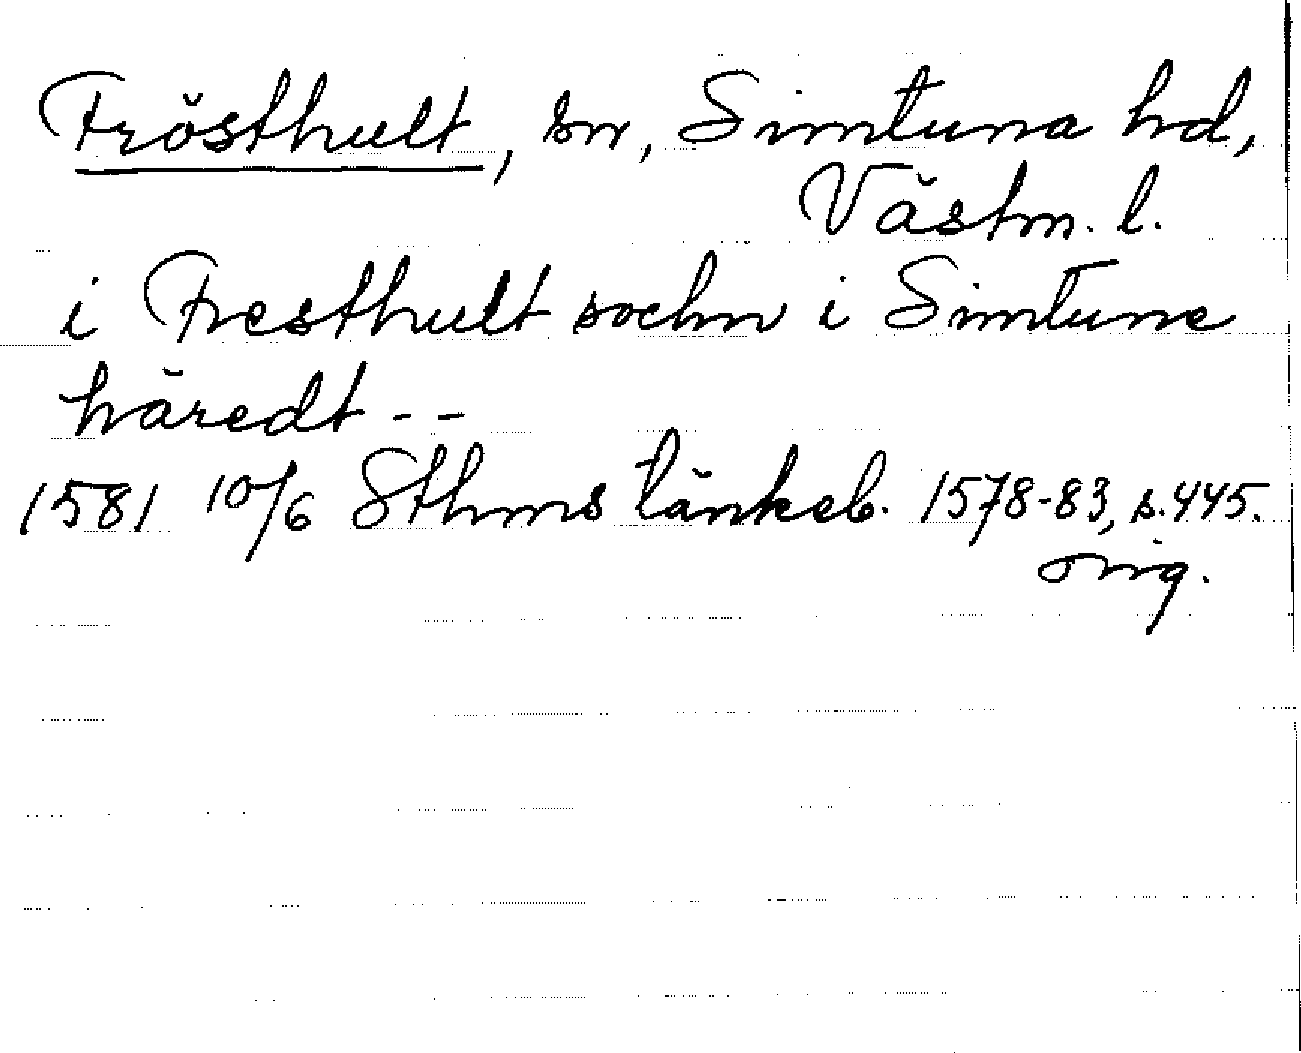 Frösthult, sn, Simtuna hd,
Västm. l.
i Fresthult sochn i Simtune
häredt - -
1581 10/6 Sthms tänkeb. 1578-83, s. 445.
orig.